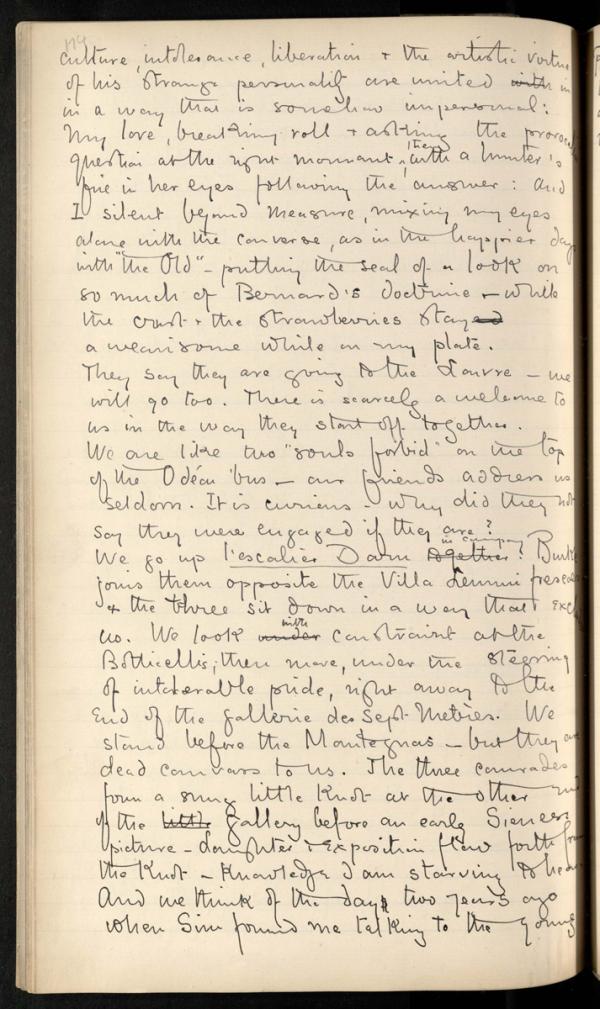 174
culture, intolerance, liberation & the artistic virtue
of his strange personality are united with in
in a way that is somehow impersonal:
My love, breaking roll & asking the
question at the right moment, then with a hunter's
fire in her eyes following the answer: and
I silent beyond measure, mixing my eyes
alone with the converse, as in the happier days
with "the Old" - putting the seal of a look on
so much of Bernard's doctrine - while
the crust & the strawberries stayed
a wearisome while on my plate.
They say they are going to the Louvre - we
will go too. There is scarcely a welcome to
us in the way they start off together.
We are like two "souls forbid" on the top
of the Odéon 'bus - our friends address us
seldom. It is curious - why did they not
say they were engaged if they are?
We go up l'escalier Daru together in company?
joins them opposite the Villa Lemmi frescoes
& the three sit down in a way that
us. We look under with constraint at the
Botticellis; then move, under the steering
of intolerable pride, right away to the
End of the gallerie des Sept Metres. We
stand before the Mantegnas - but they are
dead canvars to us. The three comrades
form a snug little Knot at the other end
of the little gallery before an early Sienese
picture - laughter & exposition flow forth from
the Knot - Knowledge I am starving to hear
And we think of the day two years ago
when Sim found me talking to the young